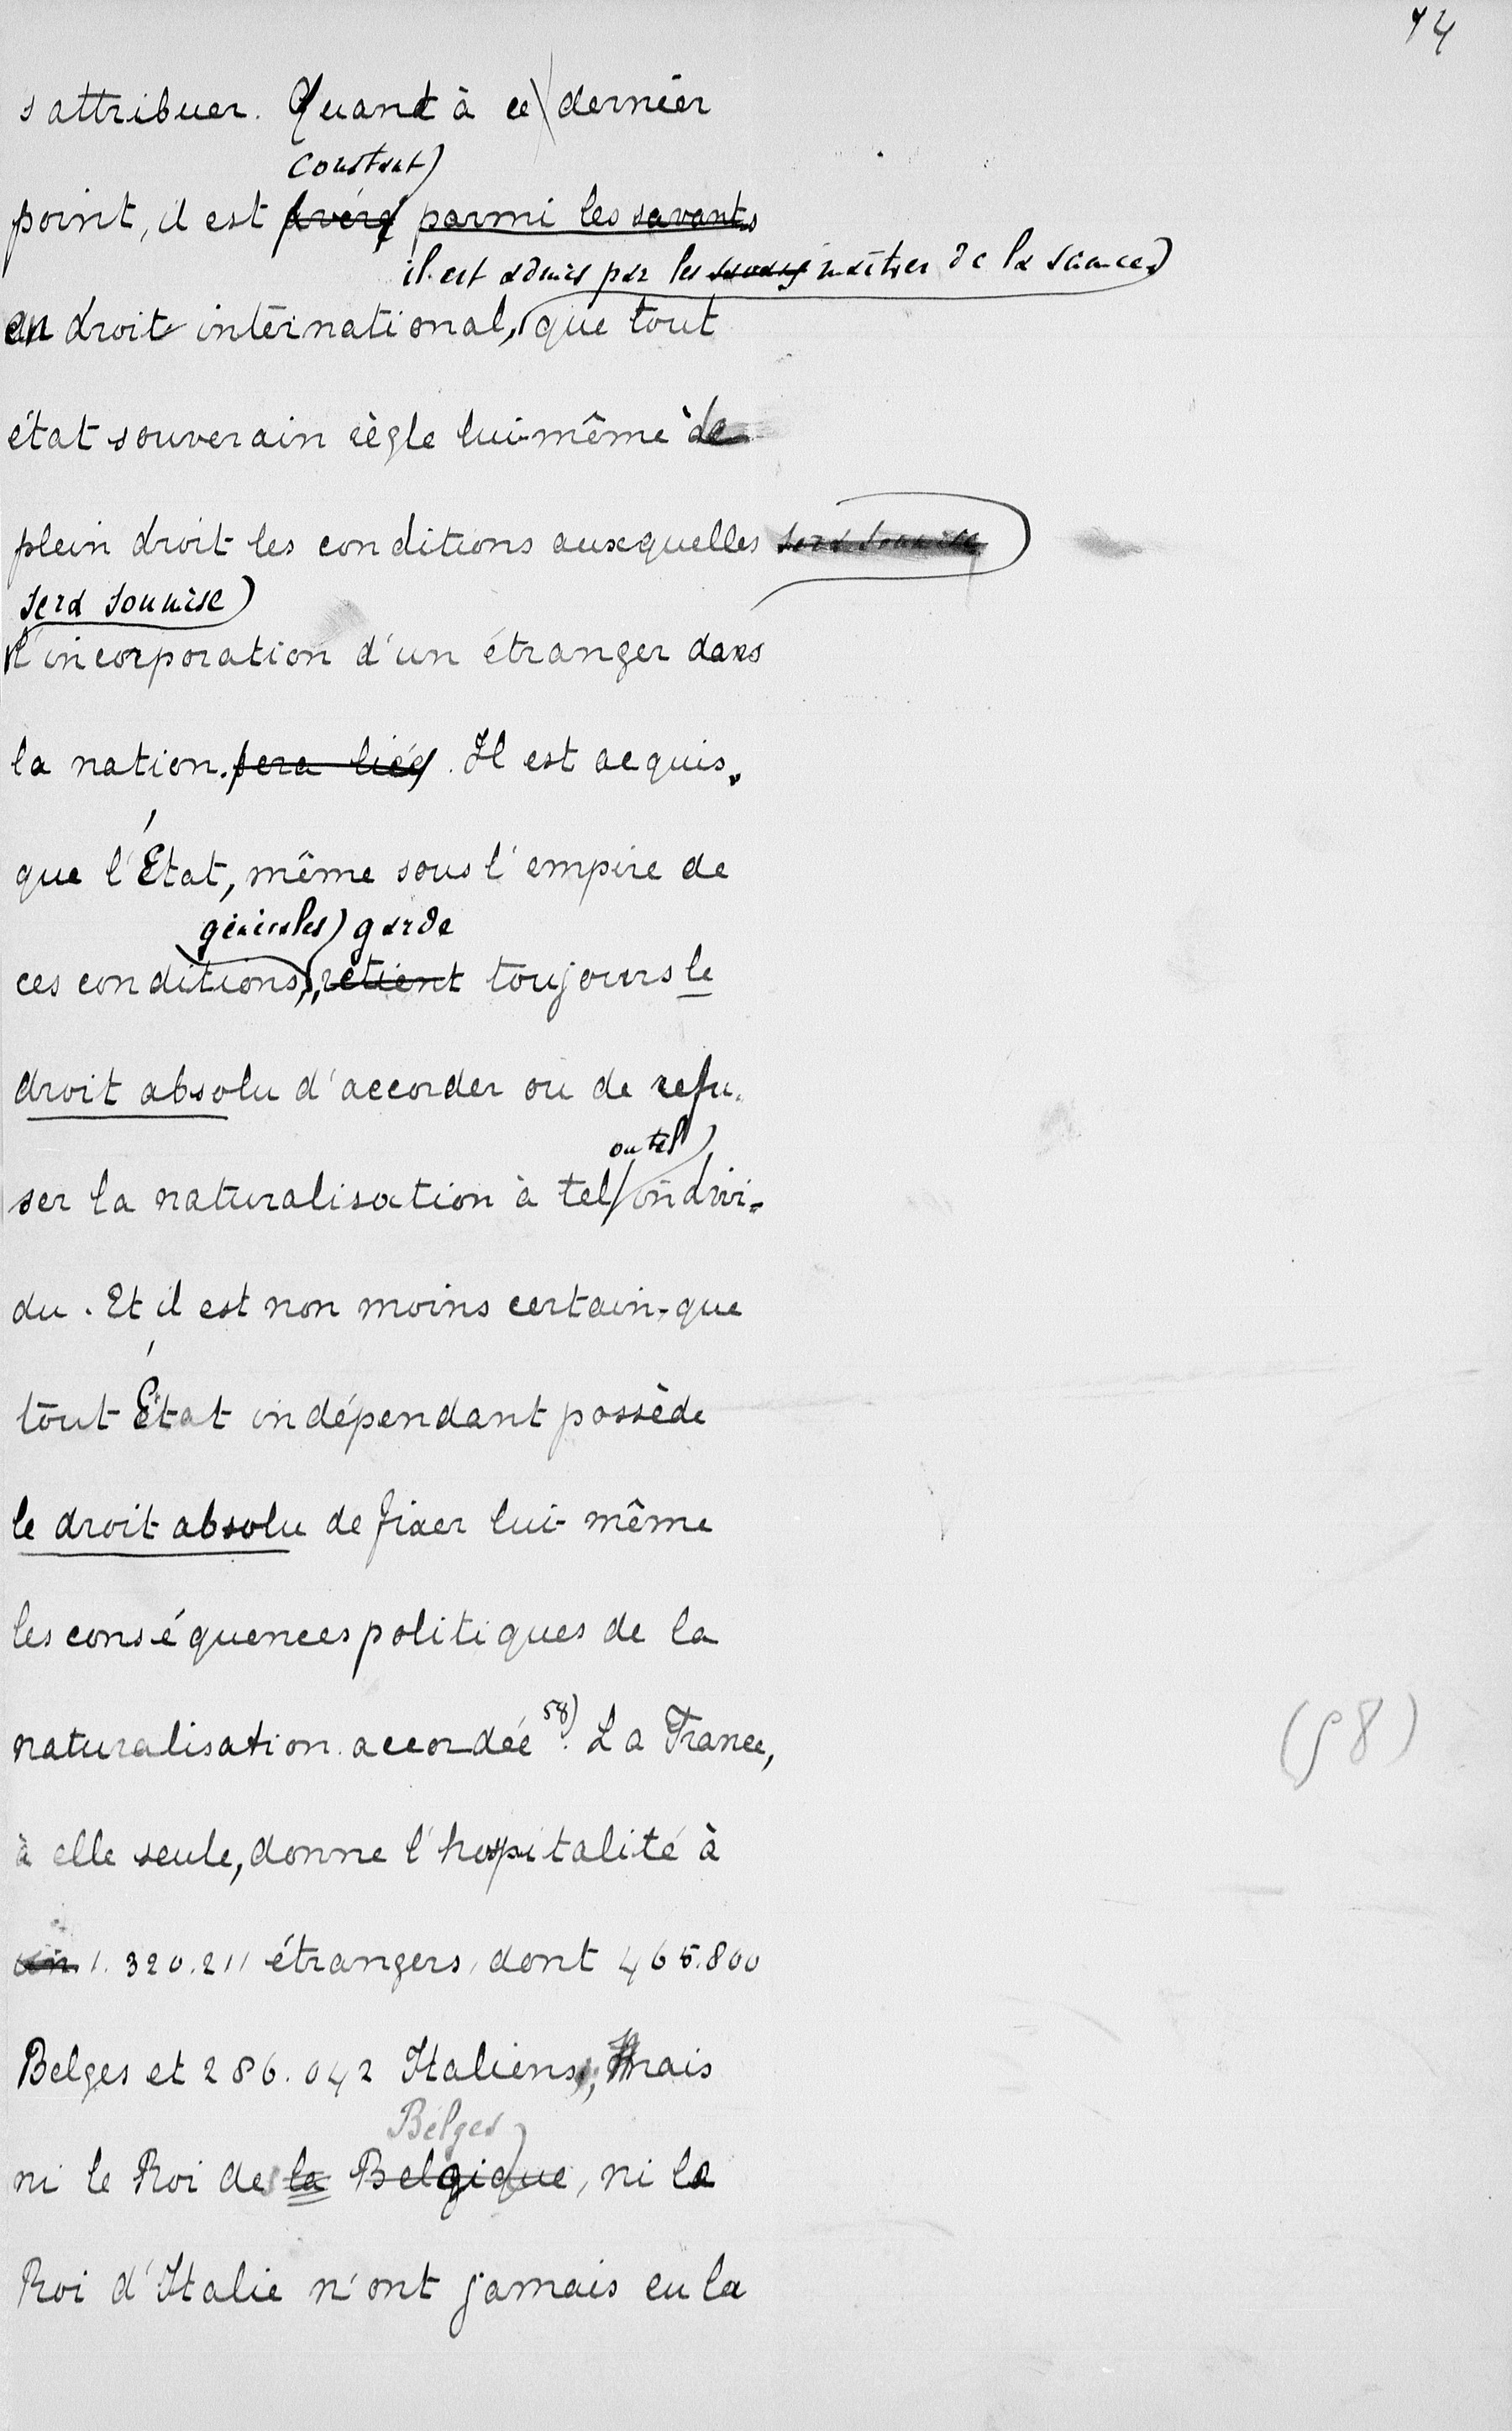 74
s'attribuer. Quant à ce dernier
constant)
point, il est avéré parmi les savants
il est admis par les maîtres de la science)
en droit international, que tout
état souverain règle lui-même de
plein droit les conditions auxquelles sera soumise
sera soumise)
l'incorporation d'un étranger dans
la nation. sera liée. Il est acquis,
que l'État, même sous l'empire de
générales) garde
ces conditions, retient toujours le
droit absolu d'accorder ou de refu-
ou tel)
ser la naturalisation à tel indivi-
du. Et il est non moins certain que
tout État indépendant possède
le droit absolu de fixer lui-même
les conséquences politiques de la
naturalisation accordée 58). La France,
(58)
à elle seule, donne l'hospitalité à
un 1.320.211 étrangers, dont 465.800
Belges et 286.042 Italiens, mais
Belges)
ni le Roi des la Belgique, ni le
Roi d'Italie n'ont jamais eu la